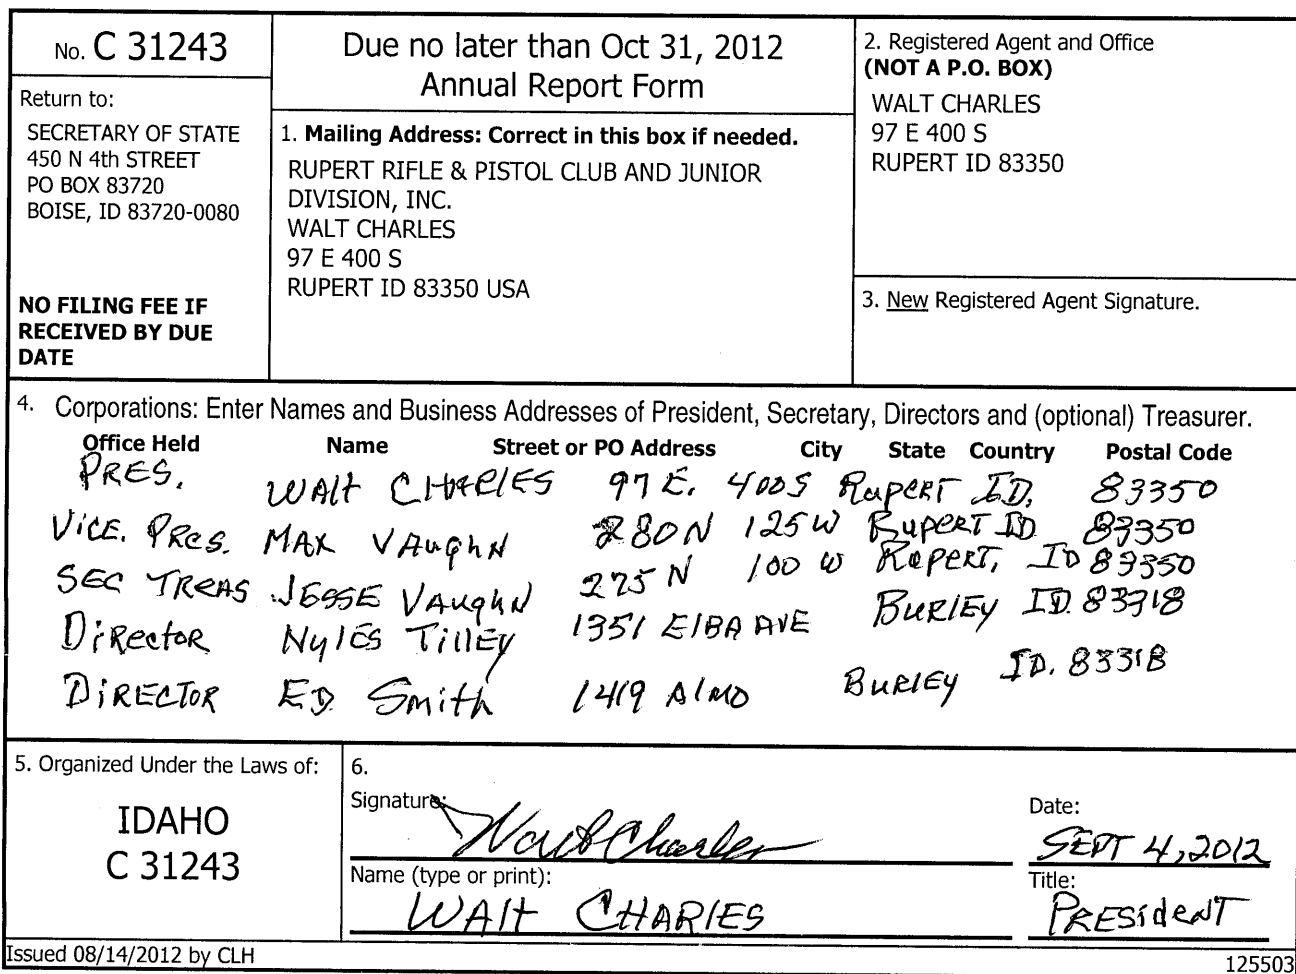 No. C 31243
Return to:
SECRETARY OF STATE
450 N 4th STREET
PO BOX 83720
BOISE, ID 83720-0080
NO FILING FEE IF
RECEIVED BY DUE
DATE
Due no later than Oct 31, 2012
Annual Report Form
1. Mailing Address: Correct in this box if needed.
RUPERT RIFLE & PISTOL CLUB AND JUNIOR
DIVISION, INC.
WALT CHARLES
97 E 400 S
RUPERT ID 83350 USA
2. Registered Agent and Office
(NOT A P.O. BOX)
WALT CHARLES
97 E 400 S
RUPERT ID 83350
3. New Registered Agent Signature.
4. Corporations: Enter Names and Business Addresses of President, Secretary, Directors and (optional) Treasurer.
Office Held Name Street or PO Address City State Country Postal Code
PRES. WAlt CHARlES 97 E. 400S RupeRT ID, 83350
VicE. PRes. MAX VAughN 280N 125W RupeRT ID 83350
SEC TREAS JESSE VAughN 275 N 100 W RupeRT, ID 83350
DiRectoR NylES TillEy 1351 ElBA AVE BuRlEy ID. 83318
DiRECToR ED Smith 1419 AlMO BuRlEy ID. 83318
5. Organized Under the Laws of:
IDAHO
C 31243
6.
Signature: Walt Charles
Date: SEPT 4, 2012
Name (type or print): WAlt CHARlES
Title: PRESideNT
Issued 08/14/2012 by CLH
125503